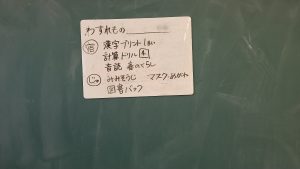 わすれもの
宿 漢字プリント1まい
計算ドリル 4
音読 春のくらし
じゅ みみそうじ マスク・めがね
図書バック